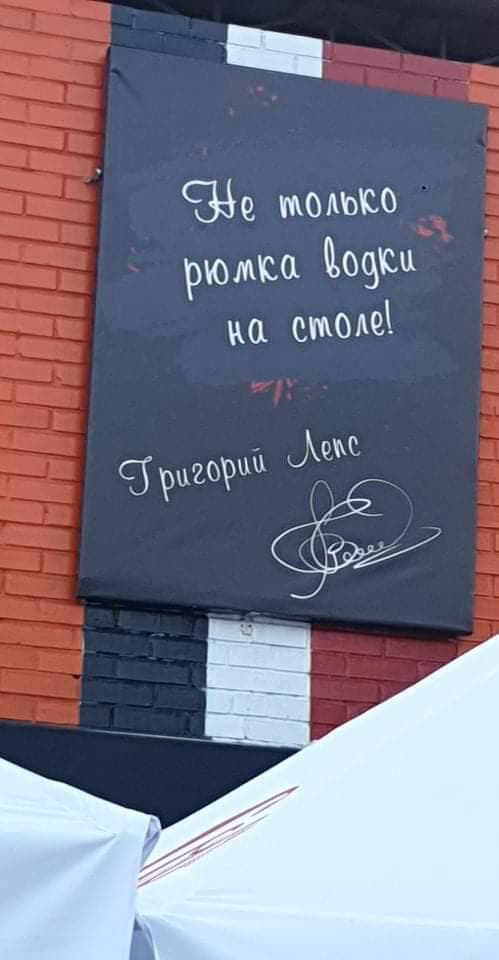 Не только
рюмка водки
на столе!
Григорий Лепс